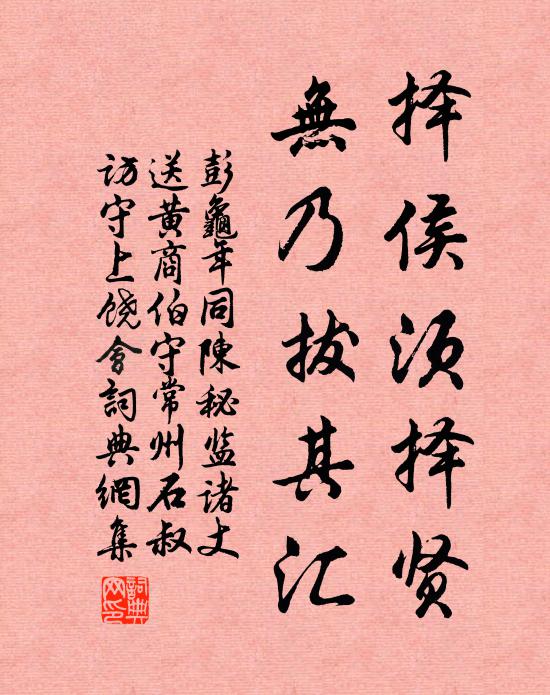 择侯须择贤
無乃拔其汇
彭龜年同陳秘监诸丈
送黄商伯守常州石叔
访守上饶會詞典網集
詞典網印